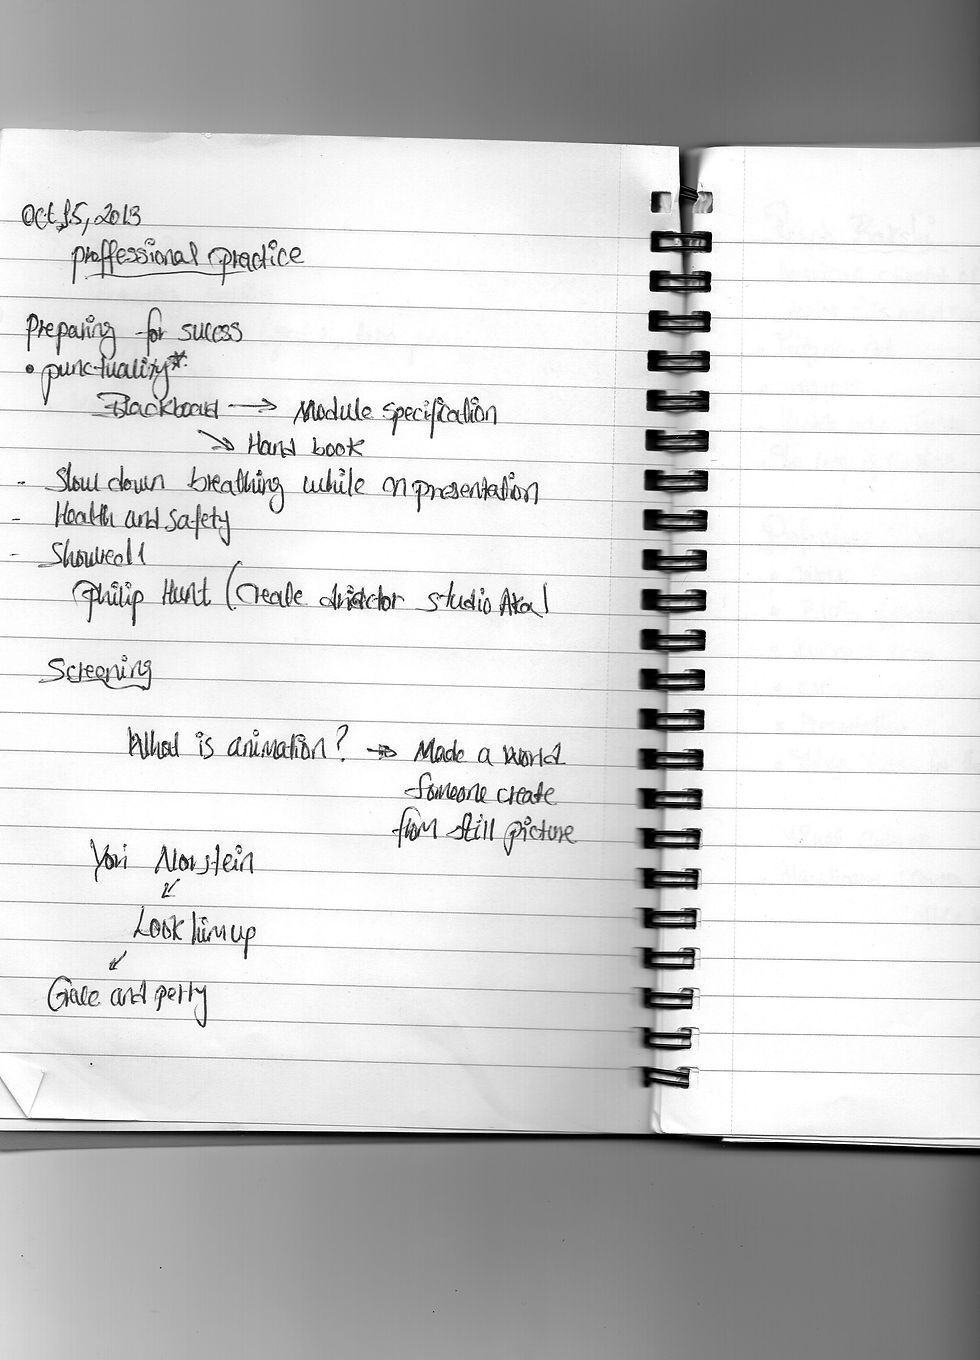 Oct 15, 2013
proffessional practice
Preparing for sucess
• punctuality*
Blackboard → Module specification
↘ Hand book
- Slow down breathing while on presentation
- Health and safety
- Showreel
Philip Hunt (Create director studio Aka)
Screening
What is animation? → Made a world
Someone create
from still picture
Yuri Norstein
↙
Look him up
↙
and perry